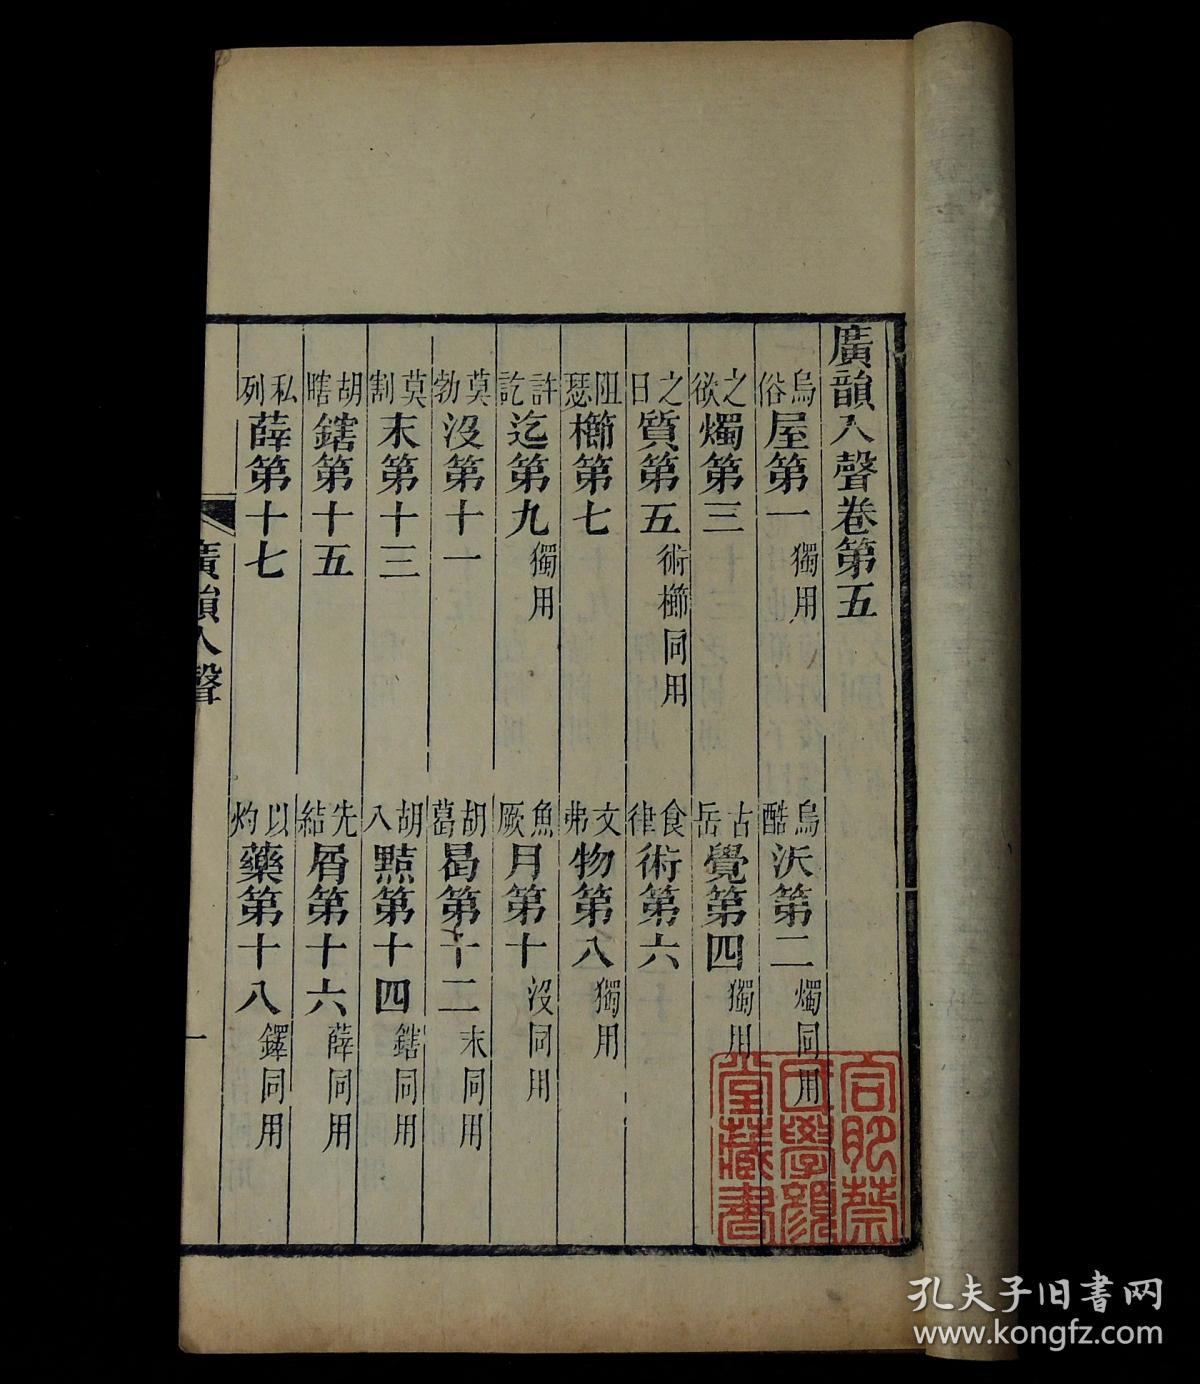 廣韻入聲卷第五
烏俗屋第一獨用
烏酷沃第二燭同用
之欲燭第三
古岳覺第四獨用
之日質第五術櫛同用
食律術第六
阻瑟櫛第七
文弗物第八獨用
許訖迄第九獨用
魚厥月第十沒同用
莫勃沒第十一
胡葛曷第十二末同用
莫割末第十三
胡八黠第十四鎋同用
胡瞎鎋第十五
先結屑第十六薛同用
私列薛第十七
以灼藥第十八鐸同用
廣韻入聲
一
堂藏書
孔夫子旧书网
www.kongfz.com